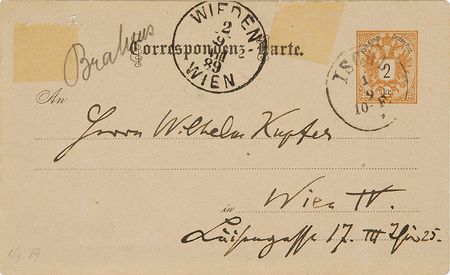 Brahms
WIEDEN
2
89
WIEN
Correspondenz-Karte.
2
IS
1
9
10-F
An
Herrn Wilhelm Kupfer
in Wien IV.
Luisengasse 17. III Thür 25.
1/9 89